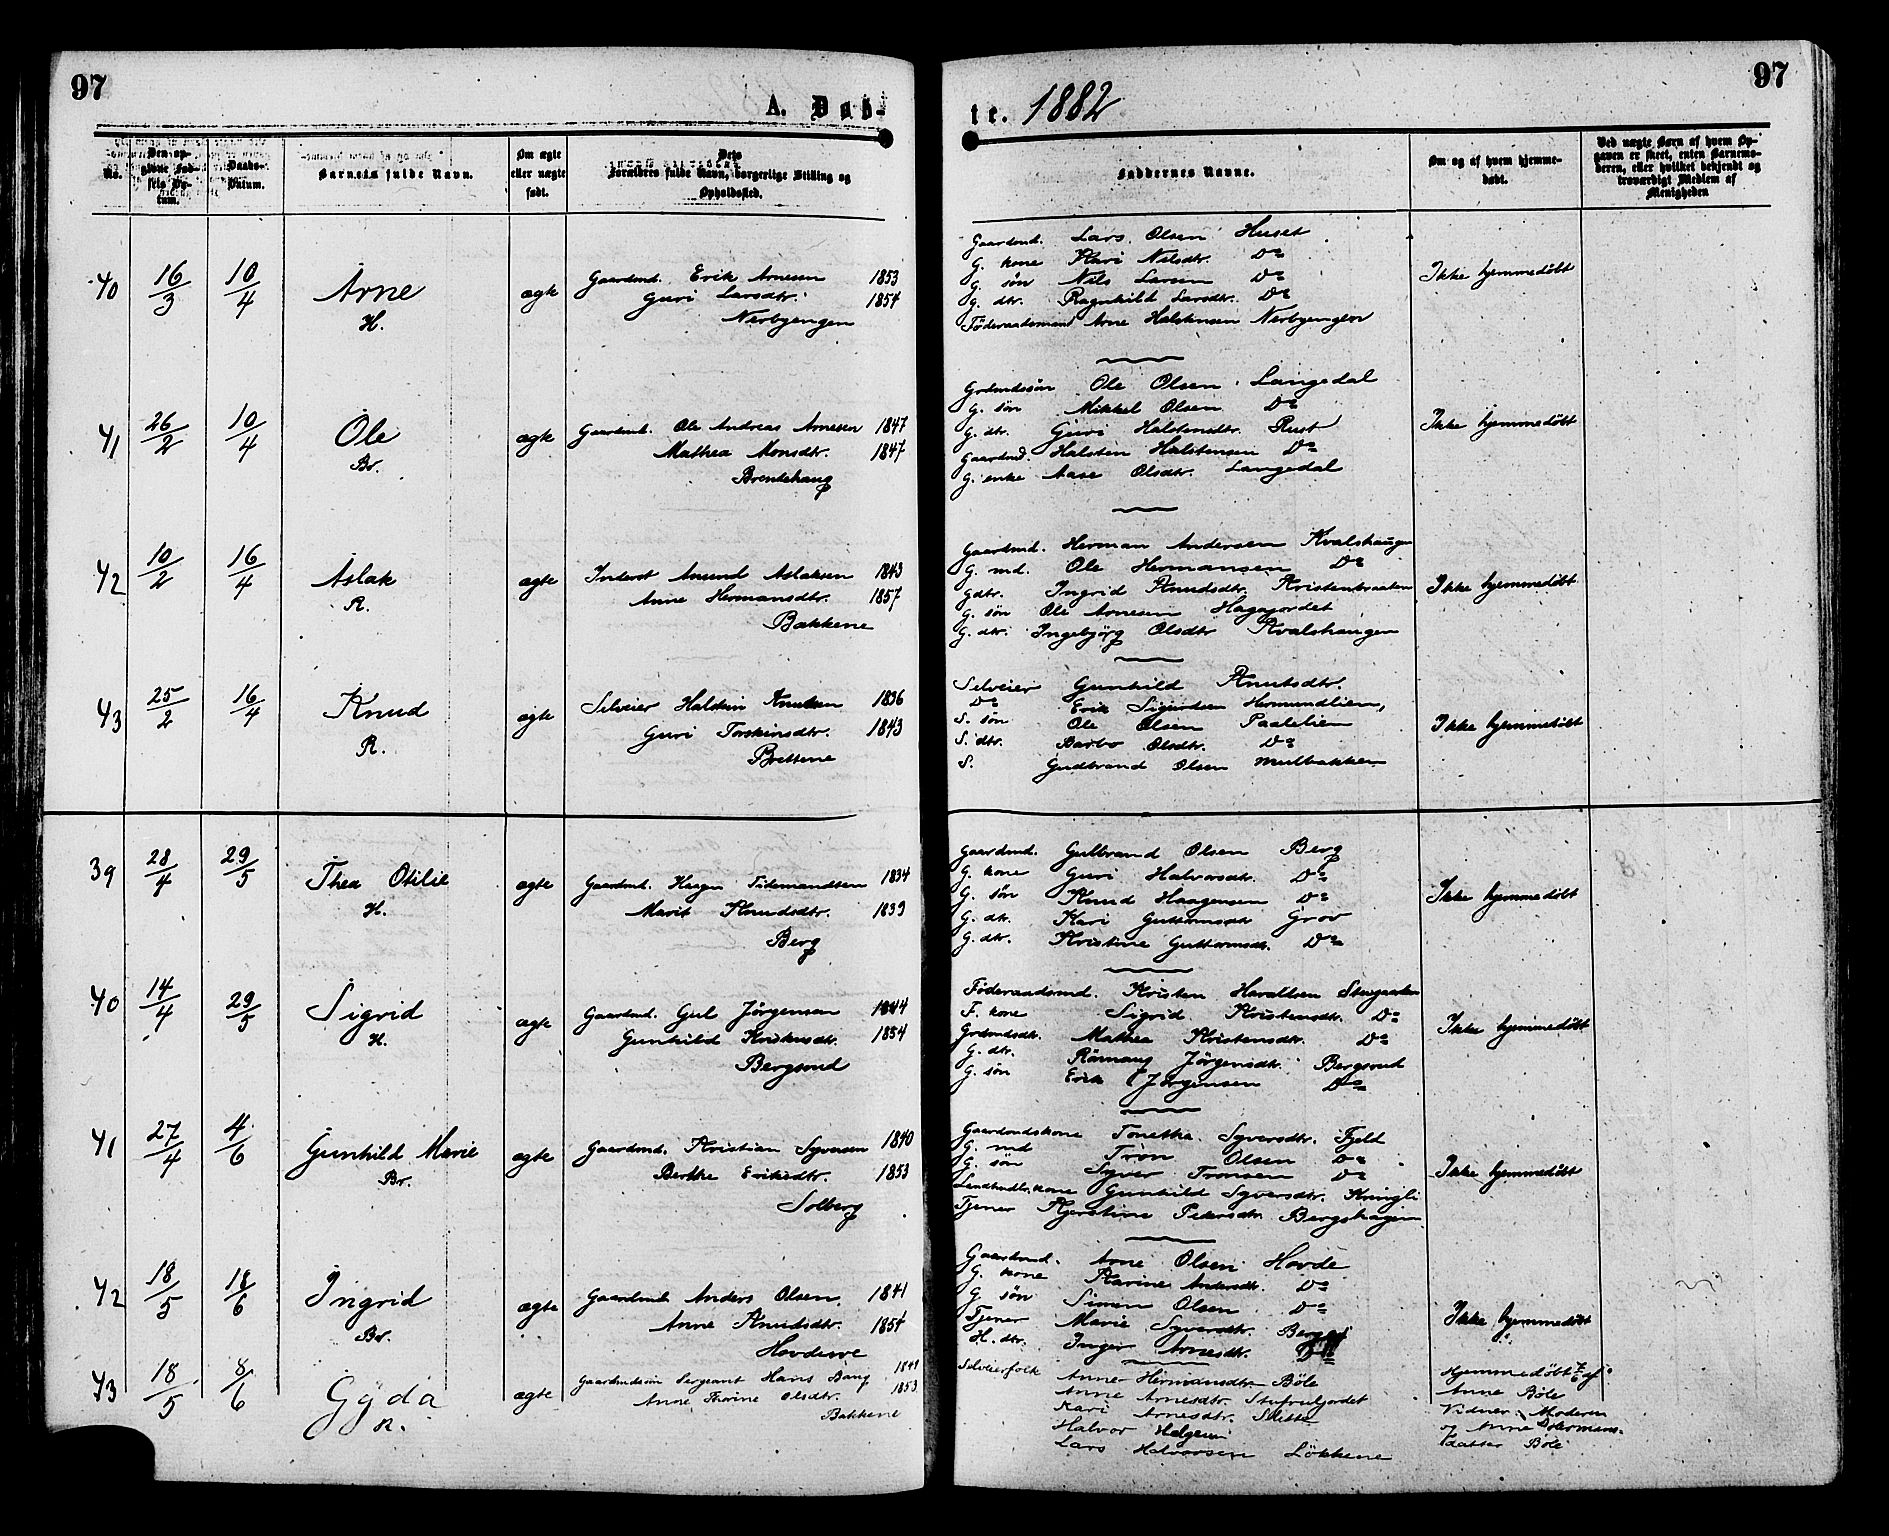 97
A. Døb-
te. 1882
97
No.
Den op-
givne Fød-
sels Da-
tum.
Daabs-
Datum.
Barnets fulde Navn.
Om ægte
eller uægte
født.
Dets
Forældres fulde Navn, borgerlige Stilling og
Opholdssted.
Faddernes Navne.
Om og af hvem hjemme-
døbt.
Ved uægte Børn af hvem Op-
gaven er skeet, enten Barnemo-
deren, eller hvilket bekjendt og
troværdigt Medlem af
Menigheden
40 16/3 10/4 Arne
H.
ægte
Gaardmd. Erik Arnesen 1853
Guri Larsdtr. 1854
Nerbyengen
Gaardmd. Lars Olsen Huset
G. kone Kari Nilsdtr. Do
G. søn Nils Larsen Do
G. dtr. Ragnhild Larsdtr. Do
Føderaadsmand Arne Halstensen Nerbyengen
Ikke hjemmedøbt
41 26/2 10/4 Ole
Br.
ægte
Gaardmd. Ole Andreas Arnesen 1847
Mathea Monsdtr. 1847
Brentehaug
Grdmdssøn Ole Olsen Langedal
G. søn Mikkel Olsen Do
G. dtr. Guri Halstensdtr. Rust
Gaardmd. Halsten Halstensen Do
G. enke Aase Olsdtr. Langedal
Ikke hjemmedøbt
42 10/2 16/4 Aslak
R.
ægte
Inderst Amund Aslaksen 1843
Anne Hermansdtr. 1857
Bakkene
Gaardmd. Herman Andersen Kvalshaugen
G. md. Ole Hermansen Do
G dtr. Ingrid Knudsdtr. Kristenbraaten
G. søn Ole Arnesen Hagajordet
G. dtr. Ingebjørg Olsdtr Kvalshaugen
Ikke hjemmedøbt
43 25/2 16/4 Knud
R.
ægte
Selveier Halstein Knutsen 1836
Guri Torsteinsdtr. 1843
Brettene
Selveier Gunhild Knutsdtr.
Do Erik Sigurdsen Hermundlien,
S. søn Ole Olsen Paalelien
S. dtr. Barbo Olsdtr. Do
S. Gudbrand Olsen Mulbakken
Ikke hjemmedøbt
39 28/4 29/5 Thea Otilie
H.
ægte
Gaardmd. Haagen Tidemandsen 1834
Marit Knudsdtr. 1839
Berg
Gaardmd. Gulbrand Olsen Berg
G. kone Guri Halvorsdtr. Do
G. søn Knud Haagensen Do
G. dtr. Kari Guttormsdtr Grov
G. dtr. Kristine Guttormsdtr. Do
Ikke hjemmedøbt
40 14/4 29/5 Sigrid
H.
ægte
Gaardmd. Gul Jörgensen 1844
Gunhild Kristensdtr. 1854
Bergsrud
Føderaadsmd. Kristen Stengaarden
F. kone Sigrid Kristensdtr. Do
Grdmdsdtr. Mathea Kristensdtr. Do
G. dtr. Rönnaug Jörgensdtr. Bergsrud
G. søn Erik Jörgensen Do
Ikke hjemmedøbt
41 27/4 4/6 Gunhild Marie
Br.
ægte
Gaardmd. Kristian Syversen 1840
Berthe Eriksdtr. 1853
Solberg
Gaardmdskone Tonetha Syversdtr. Fjeld
G. md Tron Olsen Do
G. søn Syver Tronsen Do
Landhndlr. kone Gunhild Syversdtr. Kringli
Tjener Kjerstine Pedersdtr. Bergshagen
Ikke hjemmedøbt
42 18/5 18/6 Ingrid
Br.
ægte
Gaardmd. Anders Olsen, 1841
Anne Knudsdtr. 1854
Hovdesve
Gaardmd. Arne Olsen Hovde
G. kone Karine Andersdtr. Do
G. søn Simen Olsen Do
Tjener Marie Syversdtr. Berget
H. dtr. Inger Arnesdtr.
Ikke hjemmedøbt
43 18/5 8/6 Gyda
R.
ægte
Gaardmdssøn Sergeant Hans Bang 1849
Anne Thorine Olsdtr. 1853
Bakkene
Selveierfolk Anne Hermansdtr Böle
Anne Arnesdtr. Stufruljordet
Kari Arnesdtr. Slette
Halvor Helgesen
Lars Halvorsen Lökkene
Hjemmedøbt 7/6 af
Anne Böle
Vidner Moderen
og Anne Hermans-
datter Böle